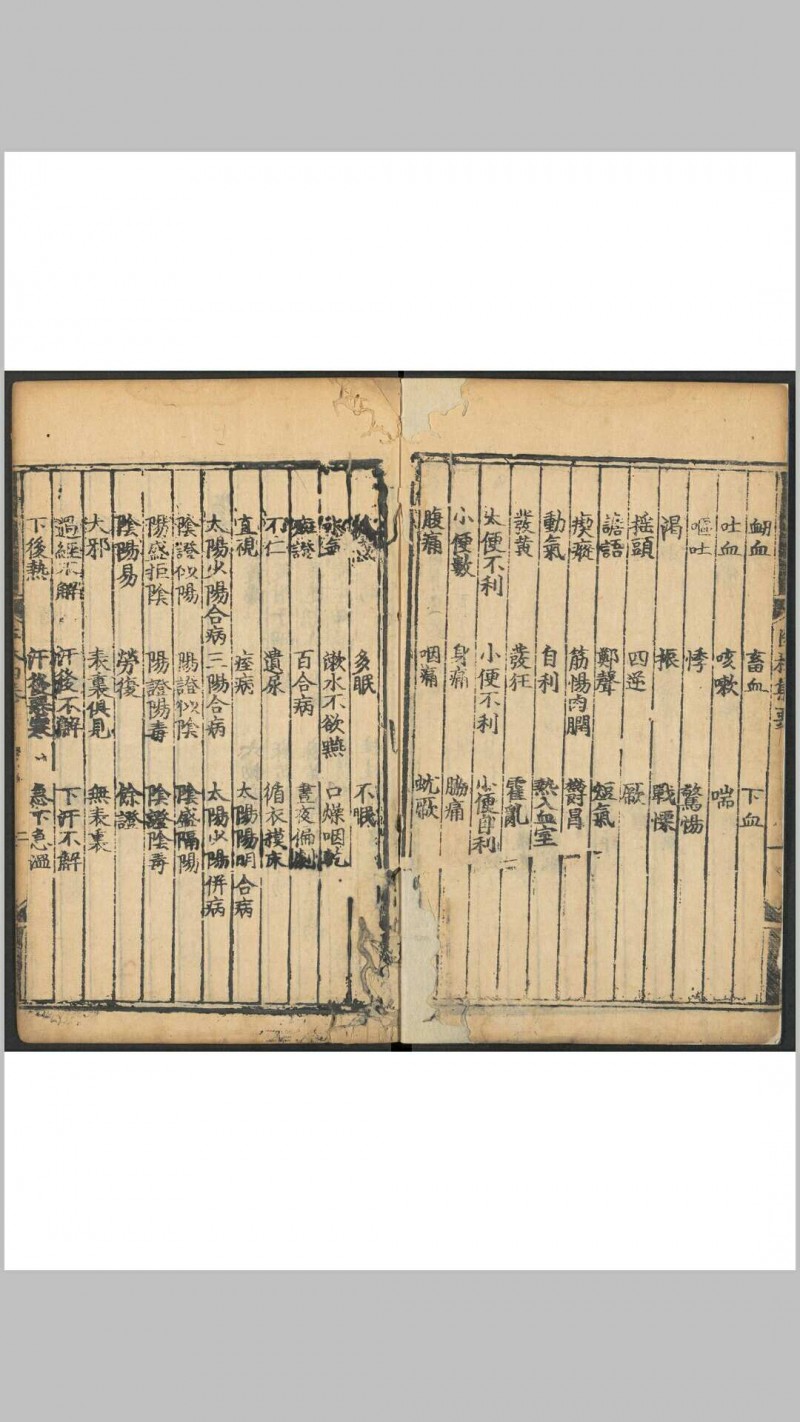 衂血 畜血 下血
吐血 咳嗽 喘
嘔吐 悸 驚惕
渴 振 戰慄
搖頭 四逆 厥
譫語 鄭聲 短氣
瘈瘲 筋惕肉瞤 欝冒
動氣 自利 熱入血室
發黃 發狂 霍亂
大便不利 小便不利 小便自利
小便數 身痛 脇痛
腹痛 咽痛 蚘厥
多眠 不眠
漱水不欲嚥 口燥咽乾
百合病 晝夜偏劇
不仁 遺尿 循衣摸床
直視 痓病 太陽陽明合病
太陽少陽合病 三陽合病 太陽少陽併病
陰證似陽 陽證似陰 陰盛隔陽
陽盛拒陰 陽證陽毒 陰證陰毒
陰陽易 勞後 餘證
大邪 表裏俱見 無表裏
過經不解 汗後不解 下汗不解
下後熱 汗後惡寒 急下急溫
二